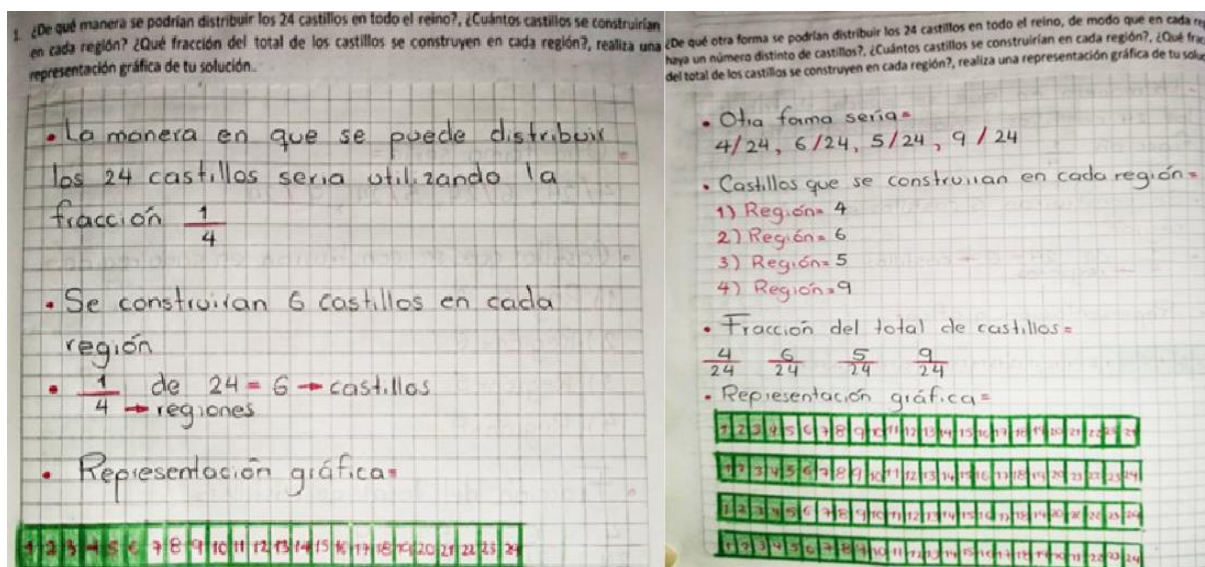 1. ¿De qué manera se podrían distribuir los 24 castillos en todo el reino?, ¿Cuántos castillos se construirían
en cada región? ¿Qué fracción del total de los castillos se construyen en cada región?, realiza una
representación gráfica de tu solución.
• La manera en que se puede distribuir
los 24 castillos seria utilizando la
fracción 1/4
• Se construiran 6 castillos en cada
región
• 1/4 de 24 = 6 → castillos
→ regiones
• Representación gráfica=
1 2 3 4 5 6 7 8 9 10 11 12 13 14 15 16 17 18 19 20 21 22 23 24
¿De qué otra forma se podrían distribuir los 24 castillos en todo el reino, de modo que en cada
haya un número distinto de castillos?, ¿Cuántos castillos se construirían en cada región?, ¿Qué
del total de los castillos se construyen en cada región?, realiza una representación gráfica de tu
• Otra forma sería=
4/24, 6/24, 5/24, 9/24
• Castillos que se construiran en cada región=
1) Región= 4
2) Región= 6
3) Región= 5
4) Región= 9
• Fracción del total de castillos=
4/24 6/24 5/24 9/24
• Representación gráfica=
1 2 3 4 5 6 7 8 9 10 11 12 13 14 15 16 17 18 19 20 21 22 23 24
1 2 3 4 5 6 7 8 9 10 11 12 13 14 15 16 17 18 19 20 21 22 23 24
1 2 3 4 5 6 7 8 9 10 11 12 13 14 15 16 17 18 19 20 21 22 23 24
1 2 3 4 5 6 7 8 9 10 11 12 13 14 15 16 17 18 19 20 21 22 23 24